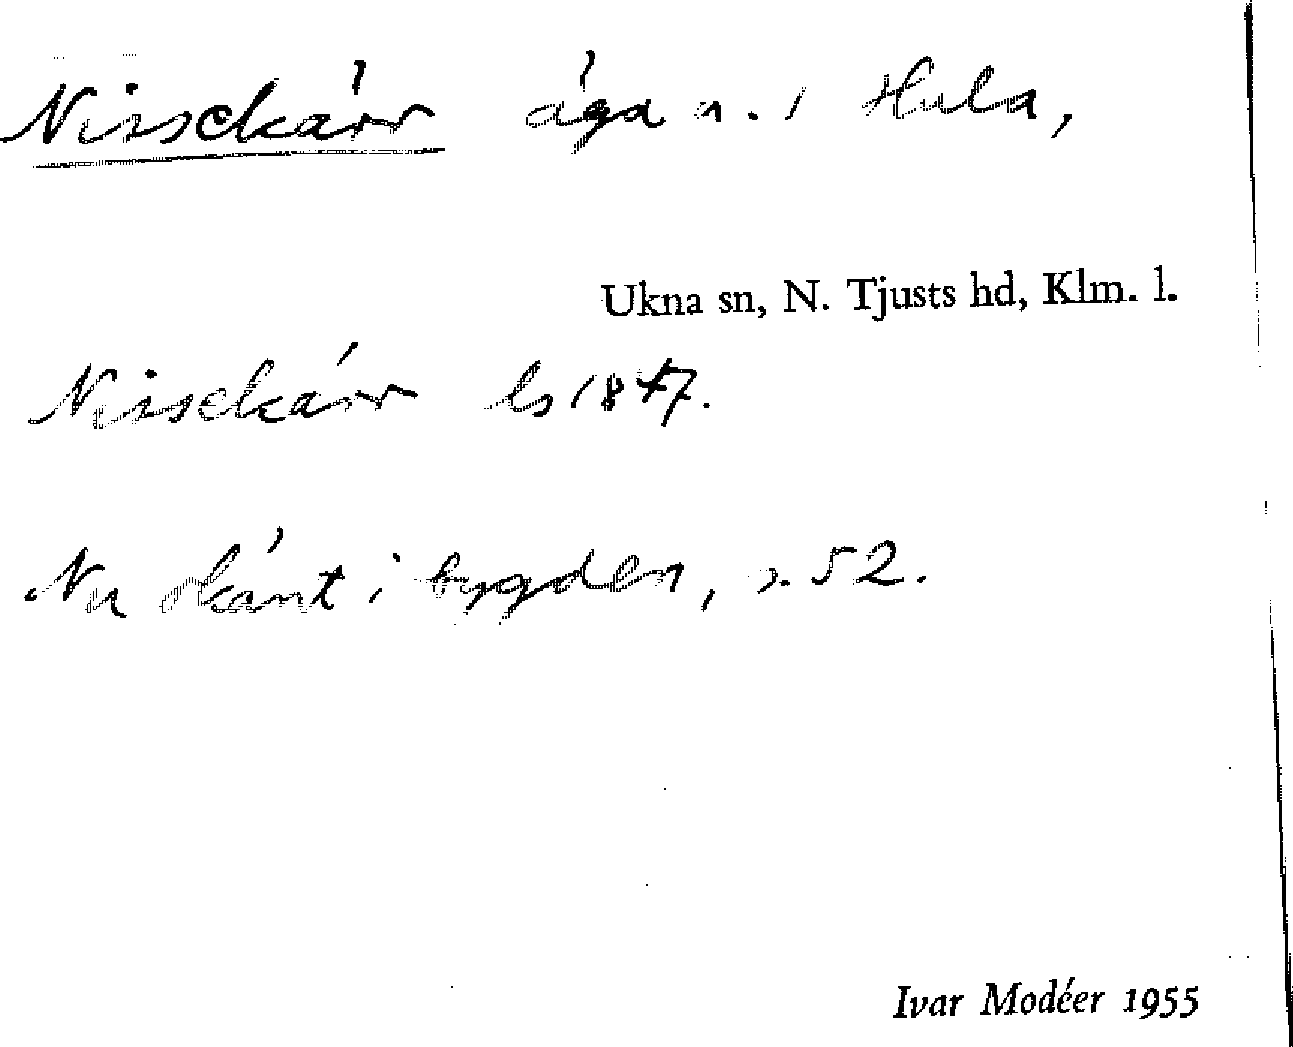 Nissekärr äga n. i Hula,
Ukna sn, N. Tjusts hd, Klm. l.
Nissekärr ls 1847.
Nu okänt i bygden, s. 52.
Ivar Modéer 1955